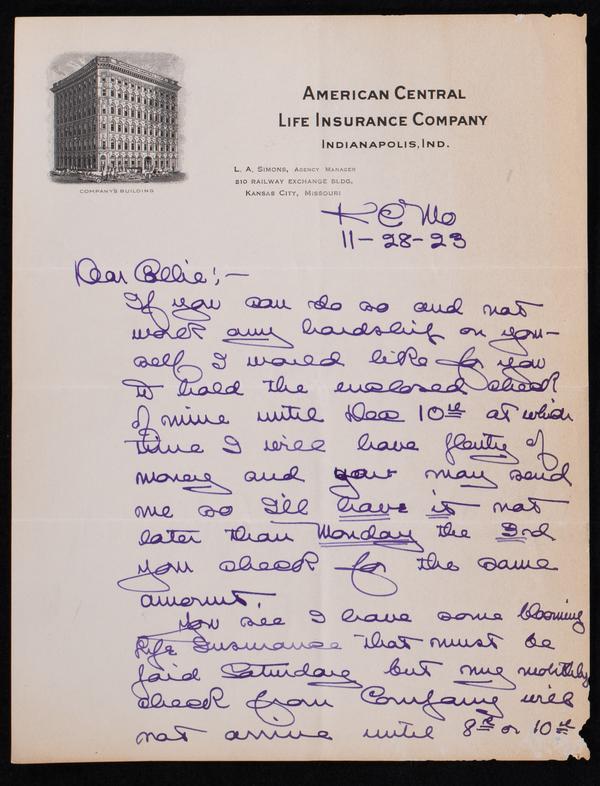 AMERICAN CENTRAL
LIFE INSURANCE COMPANY
INDIANAPOLIS, IND.
L. A. SIMONS, AGENCY MANAGER
810 RAILWAY EXCHANGE BLDG,
KANSAS CITY, MISSOURI
COMPANY'S BUILDING
K C Mo
11-28-23
Dear Collie;-
If you can do so and not
work any hardship on your-
self I would like for you
to hold the enclosed check
of mine until Dec 10th at which
time I will have plenty of
money and your may send
me so I'll have it not
later than Monday the 3rd
you check for the same
amount.
You see I have some blooming
Life Insurance that must be
paid Saturday but my monthly
check from Company will
not arrive until 8th or 10th